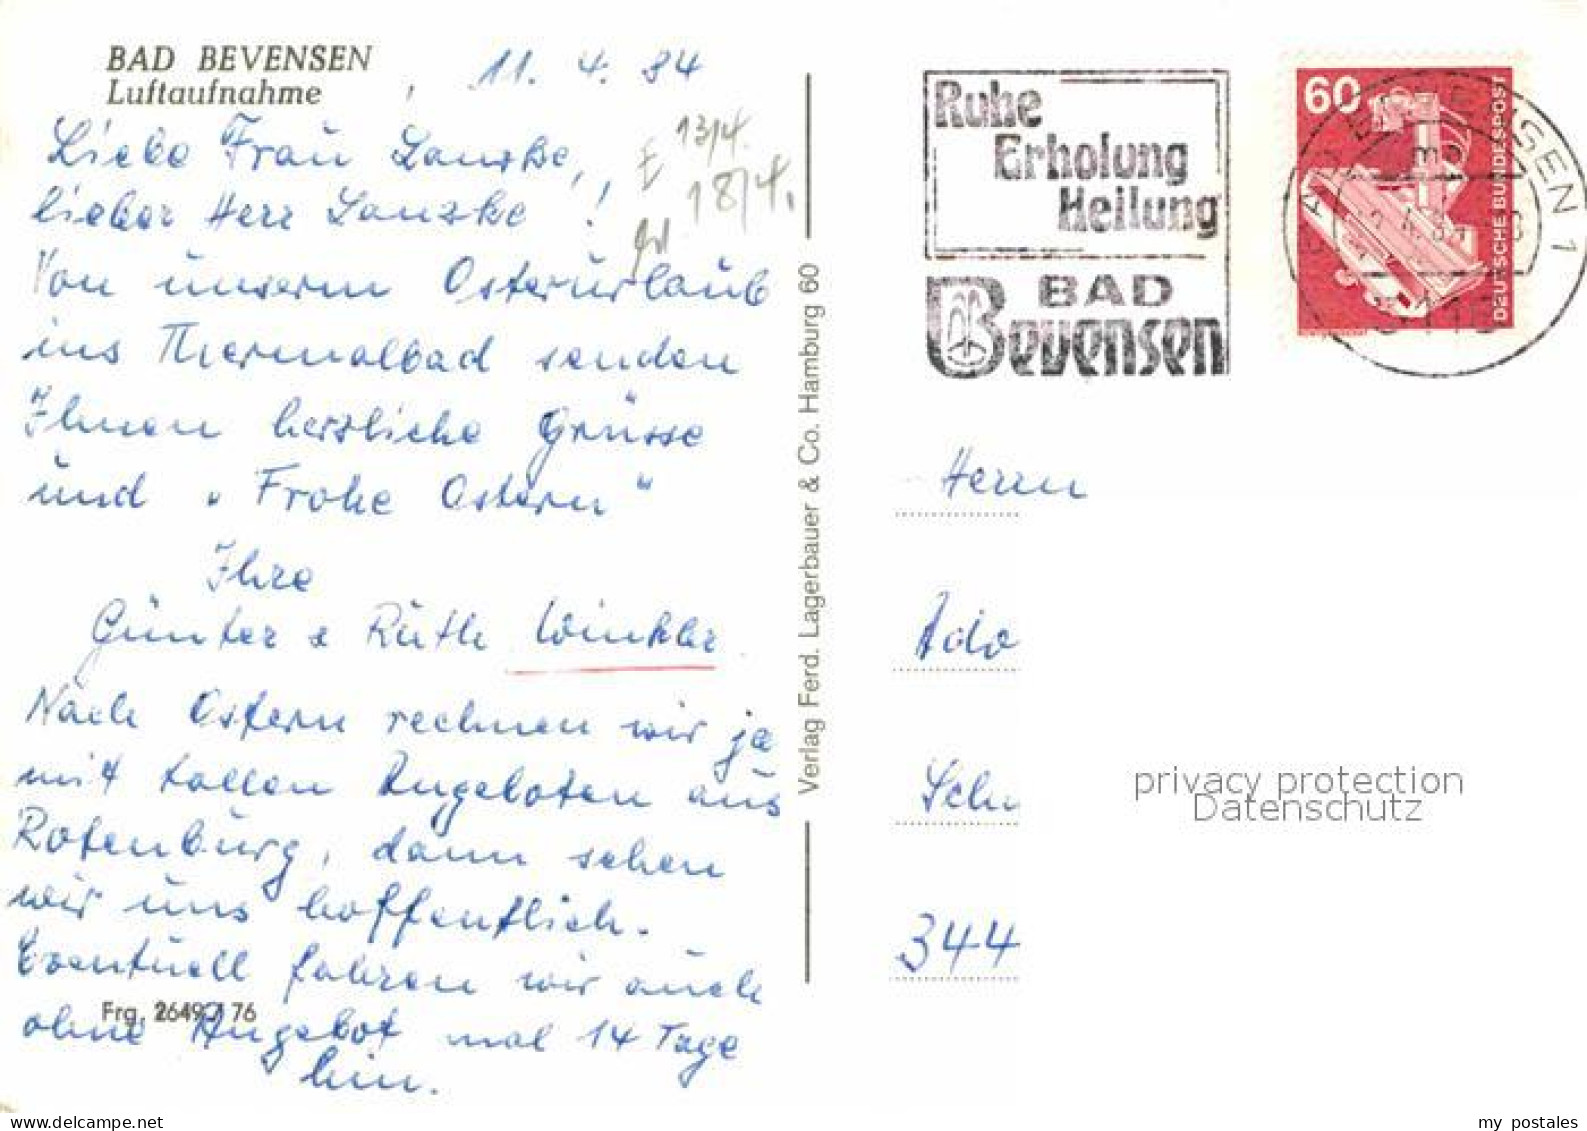 BAD BEVENSEN
Luftaufnahme
, 11. 4. 84
Liebe Frau Lanzke,
lieber Herr Lanzke !
E 13/4.
18/4.
Von unserm Osterurlaub
ins Thermalbad senden
Ihnen herzliche Grüsse
und „Frohe Ostern“
Ihre
Günter & Ruth Winkler
Nach Ostern rechnen wir ja
mit tollen Angeboten aus
Rotenburg, dann sehen
wir uns hoffentlich.
Eventuell fahren wir auch
ohne Angebot mal 14 Tage
hin.
Frg. 2649 J 76
Verlag Ferd. Lagerbauer & Co. Hamburg 60
Ruhe
Erholung
Heilung
BAD
Bevensen
60
DEUTSCHE BUNDESPOST
BAD BEVENSEN 1
Herrn
Ado
Sch
344
privacy protection
Datenschutz
my postales